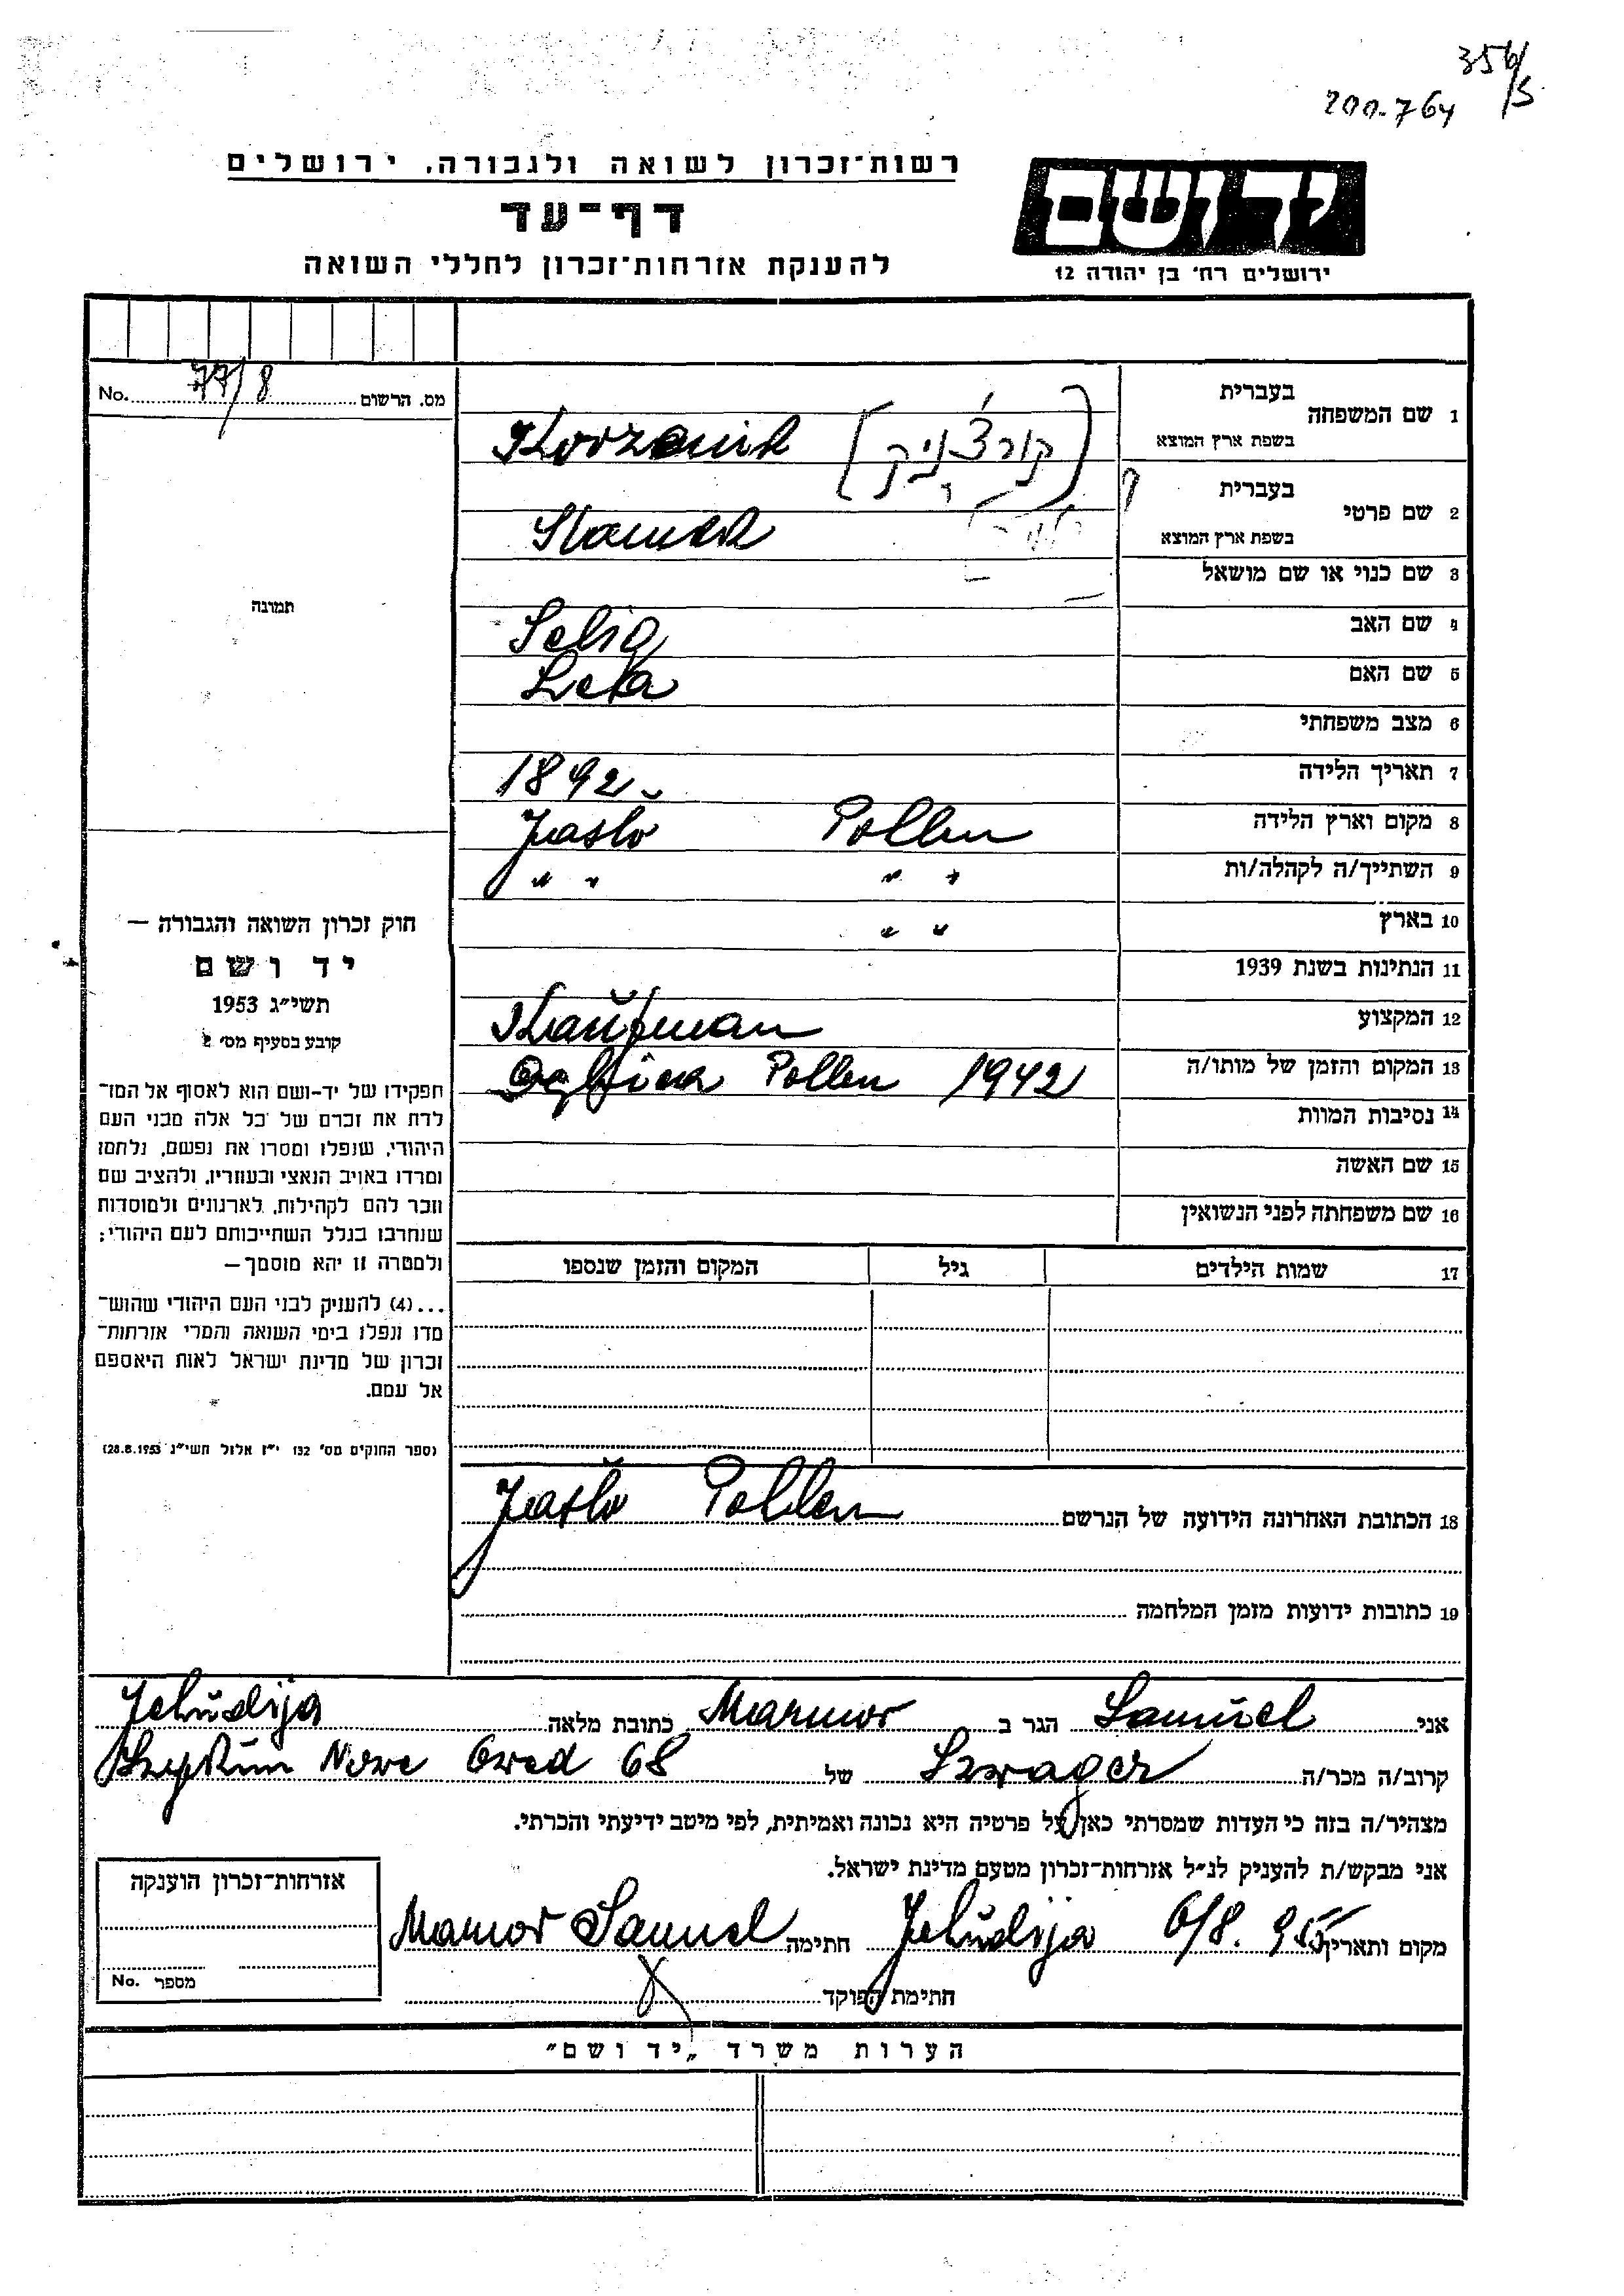 356/5
200.764
רשות־זכרון לשואה ולגבורה, ירושלים
דף־עד
להענקת אזרחות־זכרון לחללי השואה
יד ושם
ירושלים רח' בן יהודה 12
No. 77/8 מס. הרשום
תמונה
חוק זכרון השואה והגבורה —
יד ושם
תשי״ג 1953
קובע בסעיף מס' 2
תפקידו של יד-ושם הוא לאסוף אל המו־
לדת את זכרם של כל אלה מבני העם
היהודי, שנפלו ומסרו את נפשם, נלחמו
ומרדו באויב הנאצי ובעוזריו, ולהציב שם
וזכר להם לקהילות, לארגונים ולמוסדות
שנחרבו בגלל השתייכותם לעם היהודי;
ולמטרה זו יהא מוסמך —
...(4) להעניק לבני העם היהודי שהוש־
מדו ונפלו בימי השואה והמרי אזרחות־
זכרון של מדינת ישראל לאות היאספם
אל עמם.
(ספר החוקים מס' 132 י״ז אלול תשי״ג 28.8.1953)
1 שם המשפחה בעברית
בשפת ארץ המוצא Korzenik [קורצ'ניק]
2 שם פרטי בעברית
בשפת ארץ המוצא
3 שם כנוי או שם מושאל —
4 שם האב Selig
5 שם האם Lea
6 מצב משפחתי
7 תאריך הלידה 1892
8 מקום וארץ הלידה Jasło Pollen
9 השתייך/ה לקהלה/ות " " " "
10 בארץ " "
11 הנתינות בשנת 1939
12 המקצוע Kaufman
13 המקום והזמן של מותו/ה Pollen 1942
14 נסיבות המוות
15 שם האשה
16 שם משפחתה לפני הנשואין
17 שמות הילדים גיל המקום והזמן שנספו
18 הכתובת האחרונה הידועה של הנרשם Jasło Pollen
19 כתובות ידועות מזמן המלחמה
אני Samuel הגר ב Marmor כתובת מלאה Jehudija
קרוב/ה מכר/ה Szwager של Szykun Nowe Owed 68
מצהיר/ה בזה כי העדות שמסרתי כאן על פרטיה היא נכונה ואמיתית, לפי מיטב ידיעתי והכרתי.
אני מבקש/ת להעניק לנ״ל אזרחות־זכרון מטעם מדינת ישראל.
מקום ותאריך Jehudija 6/8. 955 חתימה Marmor Samuel
חתימת הפוקד
אזרחות־זכרון הוענקה
No. מספר
הערות משרד „יד ושם״